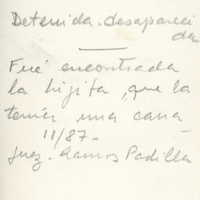 Detenida-desapareci
da
Fué encontrada
la hijita, que la
tenía una cana
11/87-
Juez. Ramos Padilla